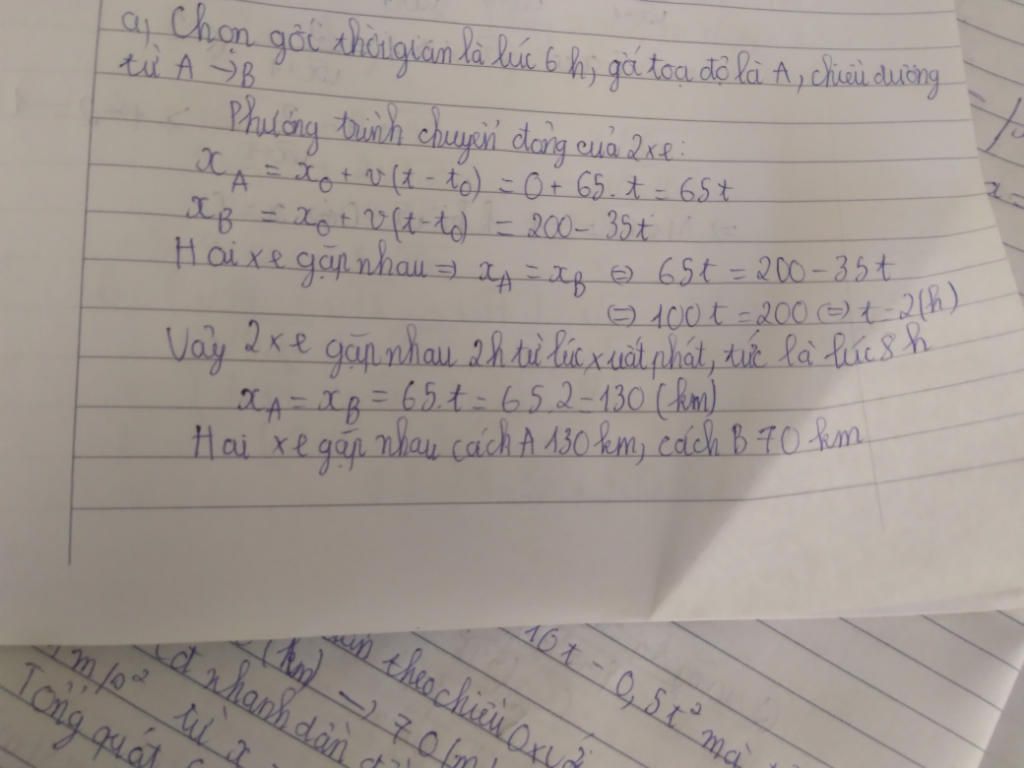 a, Chọn gốc thời gian là lúc 6 h, gố toạ độ là A, chiều dương
từ A → B
Phương trình chuyển động của 2 xe:
x_A = x_0 + v(t - t_0) = 0 + 65. t = 65t
x_B = x_0 + v(t - t_0) = 200 - 35t
Hai xe gặp nhau ⇒ x_A = x_B ⇔ 65t = 200 - 35t
⇔ 100t = 200 ⇔ t = 2(h)
Vậy 2 xe gặp nhau 2h từ lúc xuất phát, tức là lúc 8 h
x_A = x_B = 65.t = 65.2 = 130 (km)
Hai xe gặp nhau cách A 130 km, cách B 70 km
10t - 0,5t² mà
theo chiều Ox
(km) ⇒ 70
nhanh dần
từ x
Tổng quát